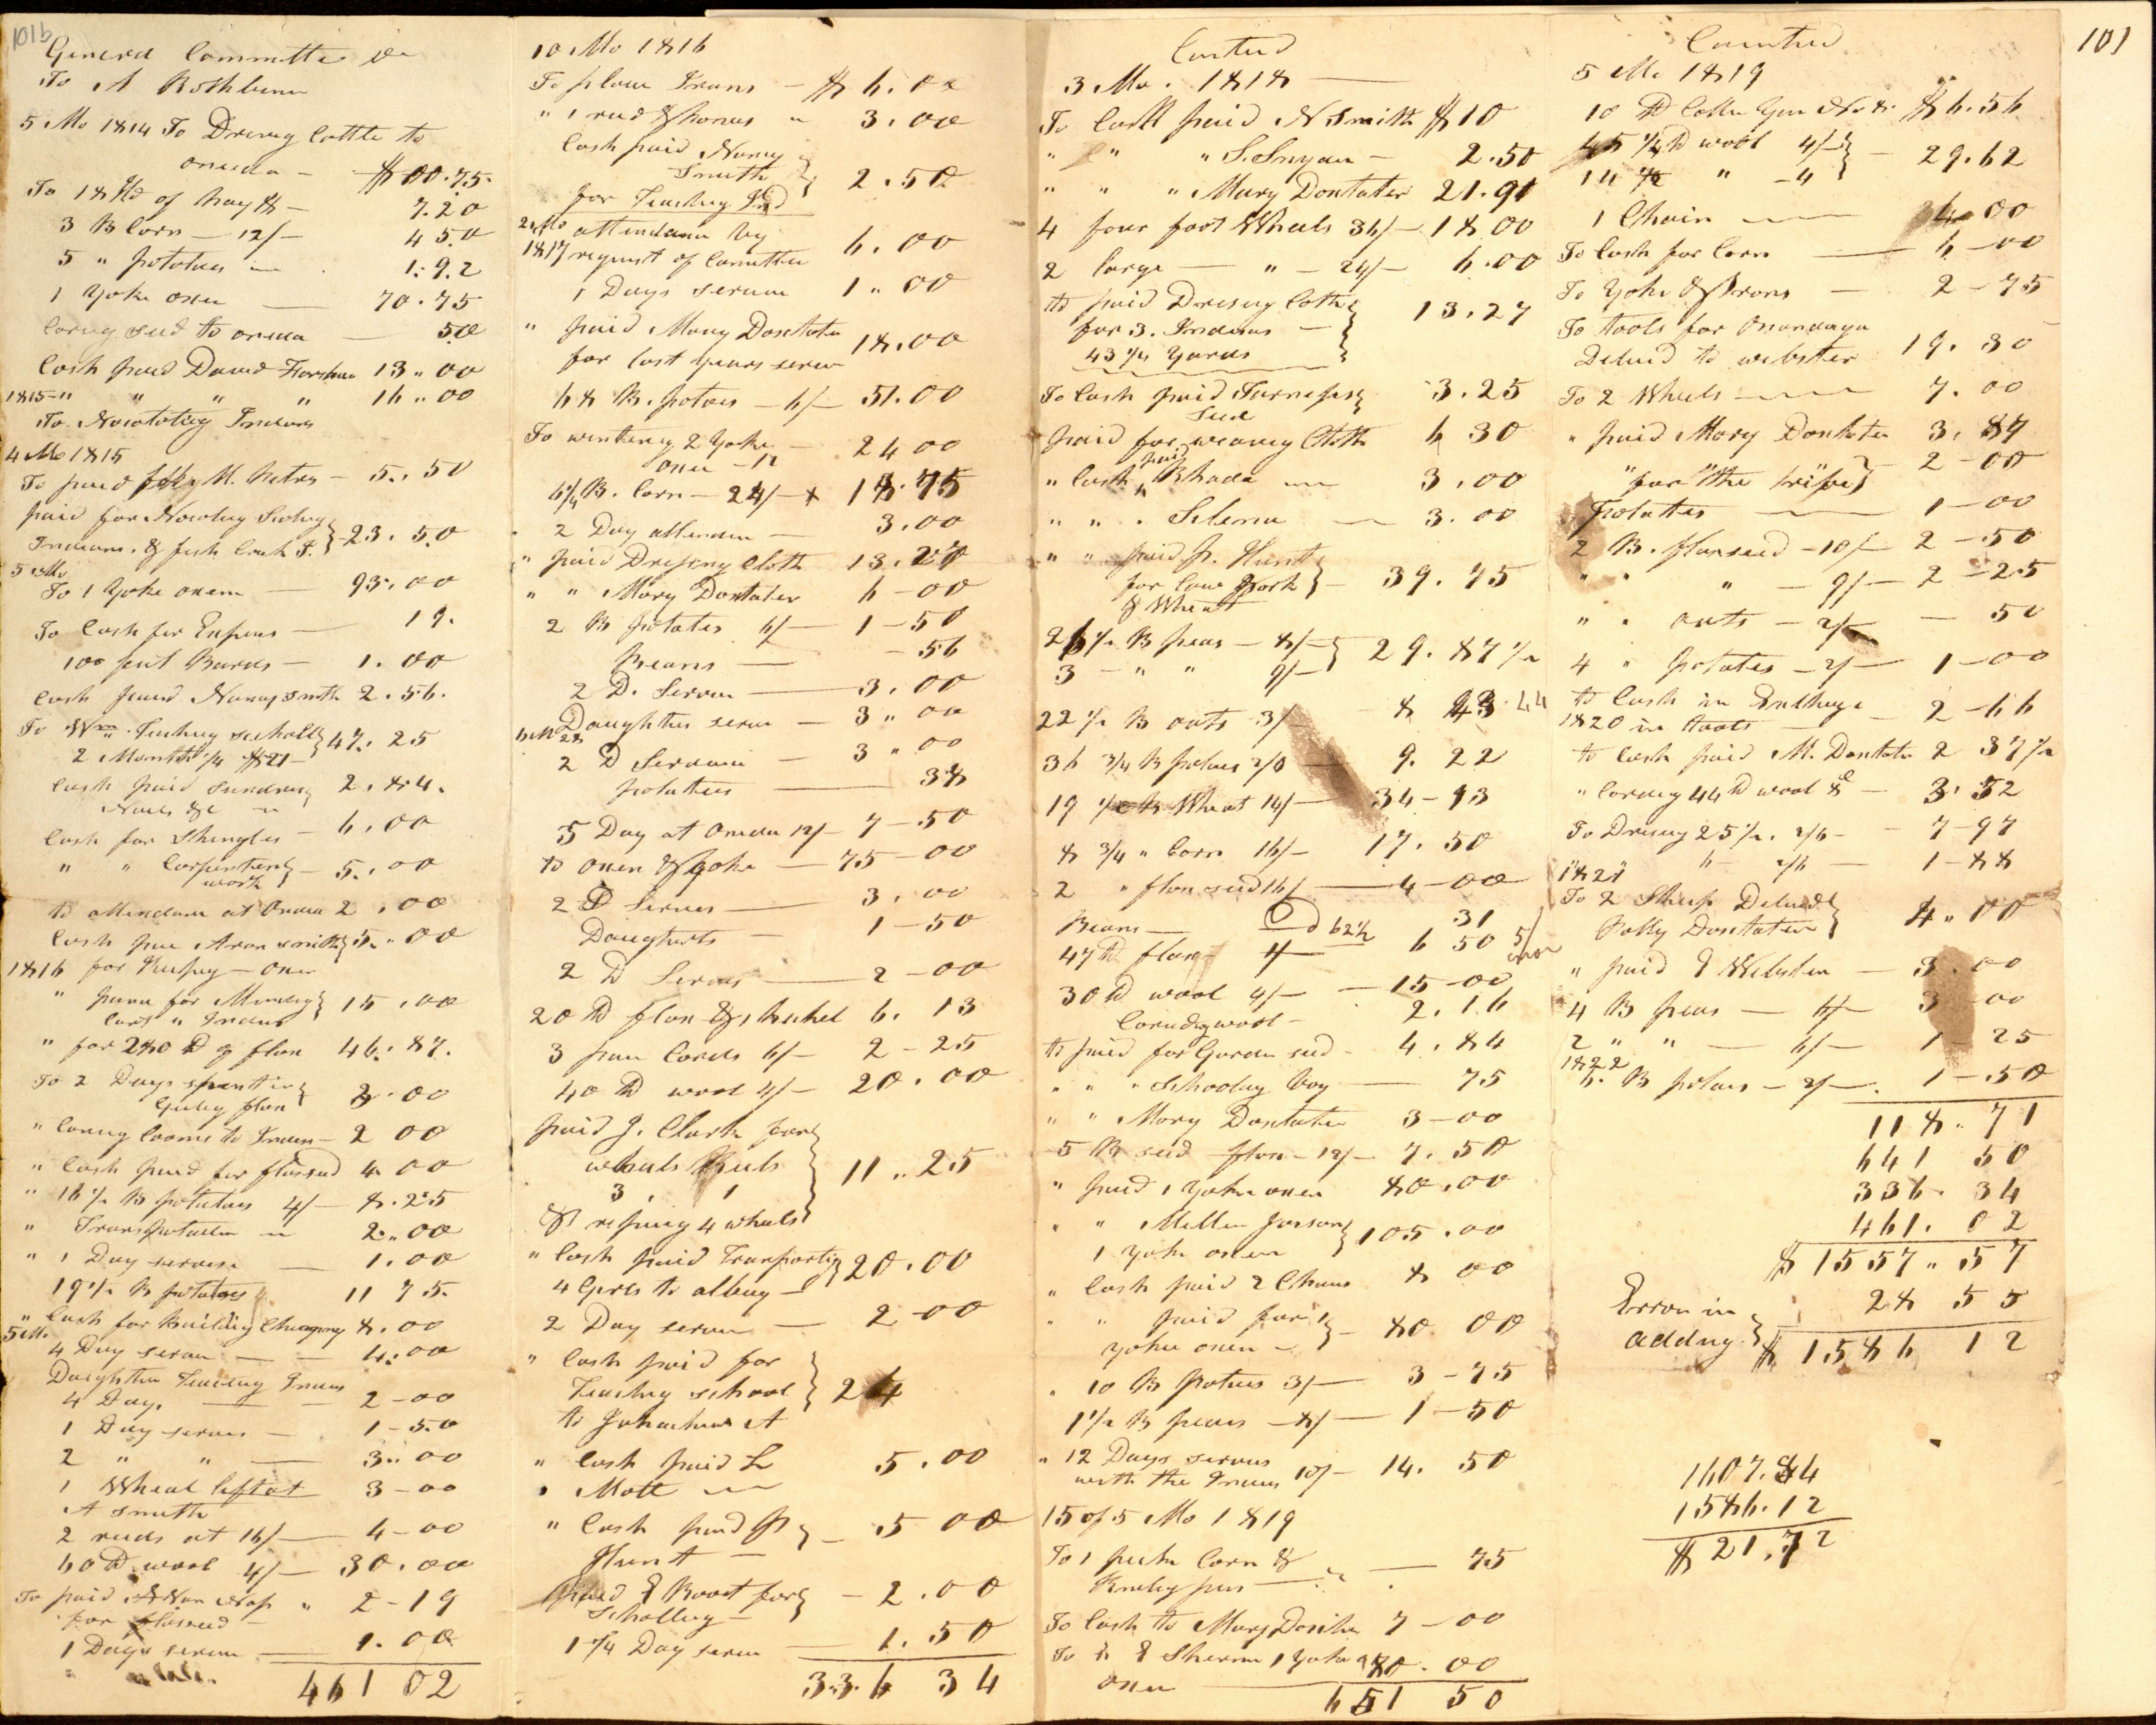 101b
General Committe Dr
To A Rathbun
5 Mo 1814 To Driveng Cattle to
oneida - $00.75
To 18 Hd of hay $ - 7.20
3 B Corn - 12/- 4 50
5 " potatoes 1.92
1 Yoke oxen - 70.75
Careng seed to oneida - 50
Cash paid David 13.00
1815 " " " " 16.00
To Indians
4 Mo 1815
To paid M. Peters - 5.50
paid for
Indians. & fish Creek I. } 23.50
5 Mo
To 1 Yoke oxen - 93.00
To Cash for Expens - 19.
100 feet Bords - 1.00
Cash paid Nancy smith 2.56.
To Wm Teaching school } 47.25
2 Months 1/4 $21 -
Cash paid sundrys 2.84.
Nails &c
Cash for Shingles - 6.00
" " Carpentery } - 5.00
work
to attendance at Oneida 2.00
Cash paid Aron smith } 5.00
1816 for Keeping - oxen
" paid for Mending } 15.00
Cart " Indians
" for 280 lb of flax 46.87.
To 2 Days
flax 3.00
" Careng looms to Indian - 2 00
" Cash paid for flaxseed 4.00
" 16 1/2 B potatoes 4/- 8.25
" Transportation 2.00
" 1 Day servise - 1.00
19 1/2 B potatoes 11 75.
" Cash for Building Chimney 8.00
5 Mo
4 Day servis - 4.00
Daughter Teaching Indians
4 Days - 2-00
1 Day serves - 1-50
2 " " - 3.00
1 Wheel left at 3-00
A smith
2 reeds at 16/- 4-00
60 lb wool 4/- 30.00
To paid " 2-19
for flaxseed -
1 Days servis - 1.00
461 02
10 Mo 1816
To plow Irons - $6.00
" 1 reed & " 3.00
Cash paid Nancy
Smith } 2.50
for Teaching Ind
2 Mo attendance by
1817 request of Committee 6.00
1 Days servis 1.00
" paid Mary Doxtater
for last years servis 18.00
68 B. potoes - 6/- 51.00
To wintering 2 Yoke - 24 00
oxen - 12
6 1/4 B. Corn - 24/- x 18.75
2 Day attendan - 3.00
" paid Dressing Cloth 13.27
" " Mary Doxtater 6-00
2 B potates 6/- 1-50
Beans - - 56
2 D. Servis - 3.00
Daughters servis - 3.00
2 D Servis - 3.00
potatees - 38
5 Day at Oneida 12/- 7-50
to oxen & yoke - 75-00
2 D Servis - 3.00
Daughters - 1-50
2 D Servis - 2-00
20 lb flax & 1 hechel 6.13
3 pare Cards 6/- 2-25
40 lb wool 4/- 20.00
paid J. Clark for }
wheels Reels } 11.25
3 , 1
& repairing 4 wheels }
" Cash paid Transporting } 20.00
4 Girls to albany -
2 Day servis - 2-00
" Cash paid for }
Teaching school } 24
to Johnathan A
" Cash paid L 5.00
" Mott
" Cash paid P } - 5 00
Hunt -
paid E Boot for } - 2.00
Scholling -
1 1/4 Day servis - 1.50
336 34
Conted
3 Mo. 1818
To Cash paid N Smith $10
" " " S. - 2.50
" " " Mary Doxtater 21.91
4 four foot Wheels 36/- 18.00
2 large - " - 24/- 6.00
to paid Dressing Cloth }
for 3. Indians - } 13.27
43 1/4 Yards }
To Cash paid Turneps } 3.25
seed
paid for weaving Cloth 6 30
" Cash paid Rhoda 3.00
" " " Selema 3.00
" " paid P. Hunt
for Cow Pork } - 39.75
& Wheat
26 1/2 B peas - 8/- } 29.87 1/2
3 - " " 9/-
22 1/2 B oats 3/- 8 43 44
36 3/4 B potaes 2/0 - 9.22
19 1/2 B Wheat 14/- 34-13
8 3/4 " Corn 16/- 17.50
2 " flax seed 16/- 4-00
Beans - 62 1/2 31
47 lb flax - 6 50 5/ error
30 lb wool 4/- - 15-00
Carding wool - 2.16
to paid for Garden seed - 4.84
" " " Schooling boy - 75
" " Mary Doxtater 3-00
5 B seed flax - 12/- 7.50
" paid 1 Yoke oxen 80.00
" " Miller } 105.00
1 yoke oxen
" Cash paid 2 Chains 8 00
" " paid for 1 } - 80 00
yoke oxen -
" 10 B Potaes 3/- 3-75
1 1/2 B peas - 8/- 1-50
" 12 Days servis
with the Indians 10/- 14.50
15 of 5 Mo 1819
To 1 peck Corn &
pees - 75
To Cash to Mary Doxtater 7-00
To E Sherman 1 Yoke 80.00
oxen
651 50
Conunted
101
5 Mo 1819
10 lb Cotton Yarn No 8. $6.56
45 1/4 lb wool 4/- } - 29.62
14 1/2 " - 4 }
1 Chain - 4 00
To Cash for Corn - 6-00
To Yoke & Irons - 2-75
To tools for Onondaga
Delivd to webster 19.30
To 2 Wheels - 7.00
" paid Mary Doxtater 3.87
" for " the tribe } 2-00
Potattes - 1-00
2 B. flaxseed - 10/- 2-50
" " " - 9/- 2-25
" " oats - 2/- - 50
4 " potates - 2/- 1-00
to Cash in
1820 in tools - 2-66
to Cash paid M. Doxtater 2 37 1/2
" Cardeng 44 lb wool 8 - 3.52
To Dresing 25 1/2. 2/6 - 7-97
1821 6 - 2/6 - 1-88
To 2 Sheep Delived }
Polly Doxtater } 4.00
" paid E Webster - 3.00
4 B peas - 6/- 3-00
2 " " - 6/- 1-25
1822
6. B potaes - 2/- 1-50
118.71
641 50
336.34
461.02
$1557.57
Error in } 28 55
adding. } $1586 12
1607.84
1586.12
$21.72